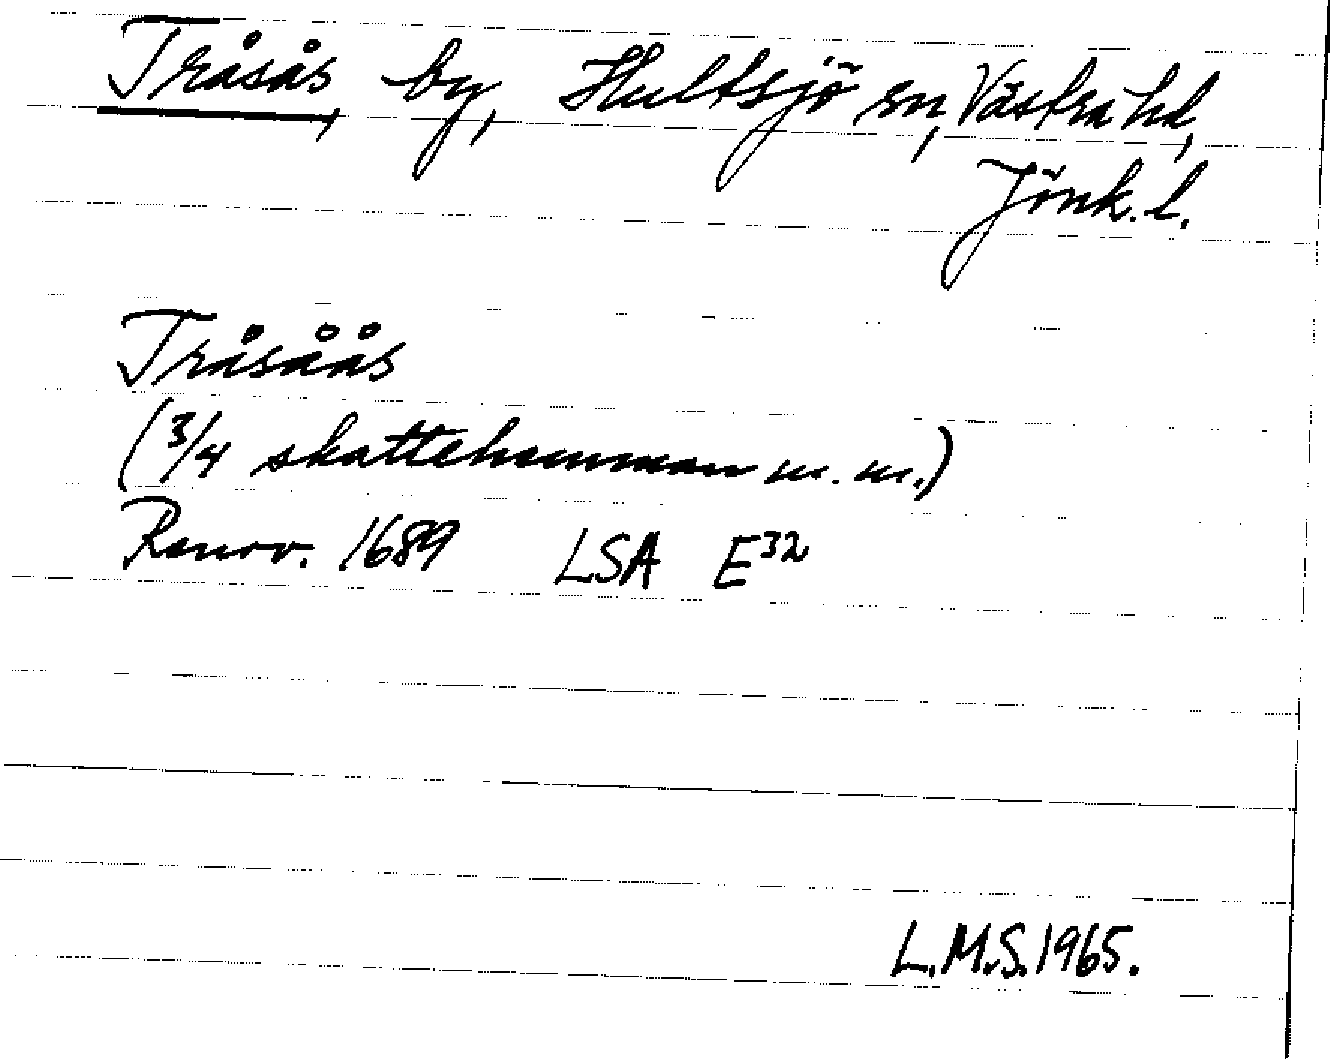 Tråsås, by, Hultsjö sn, Västra hd,
Jönk. l.
Tråsåås
(3/4 skattehemman m. m.)
Renov. 1689 LSA E32
L.M.S. 1965.